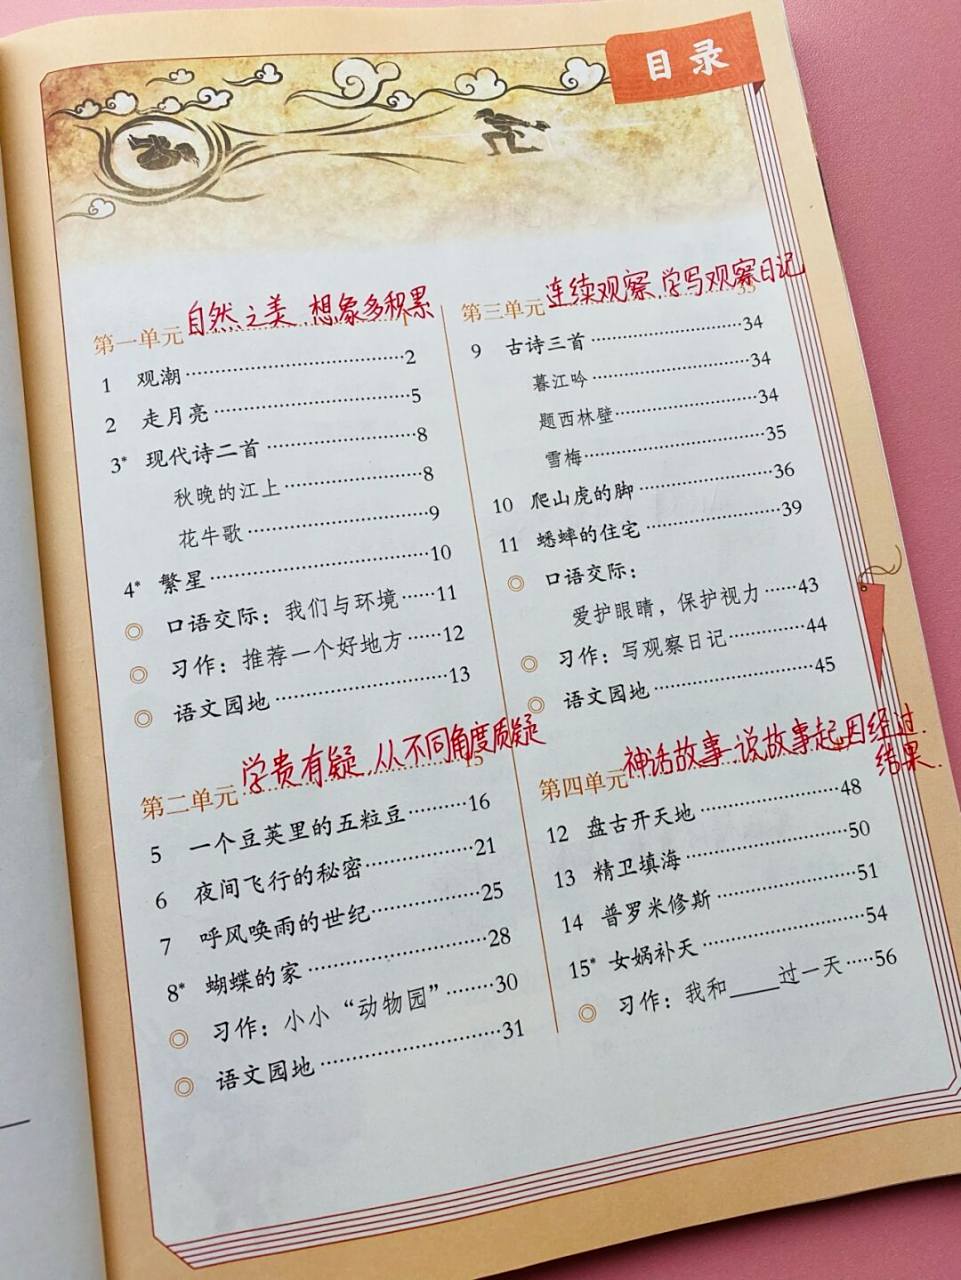 目录
第一单元 自然之美 想象多积累 1
1 观潮……2
2 走月亮……5
3* 现代诗二首……8
秋晚的江上……8
花牛歌……9
4* 繁星……10
口语交际：我们与环境……11
习作：推荐一个好地方……12
语文园地……13
第二单元 学贵有疑，从不同角度质疑 15
5 一个豆荚里的五粒豆……16
6 夜间飞行的秘密……21
7 呼风唤雨的世纪……25
8* 蝴蝶的家……28
习作：小小“动物园”……30
语文园地……31
第三单元 连续观察，学写观察日记 33
9 古诗三首……34
暮江吟……34
题西林壁……34
雪梅……35
10 爬山虎的脚……36
11 蟋蟀的住宅……39
口语交际：
爱护眼睛，保护视力……43
习作：写观察日记……44
语文园地……45
第四单元 神话故事 说故事起因经过
结果.
12 盘古开天地……48
13 精卫填海……50
14 普罗米修斯……51
15* 女娲补天……54
习作：我和____过一天……56